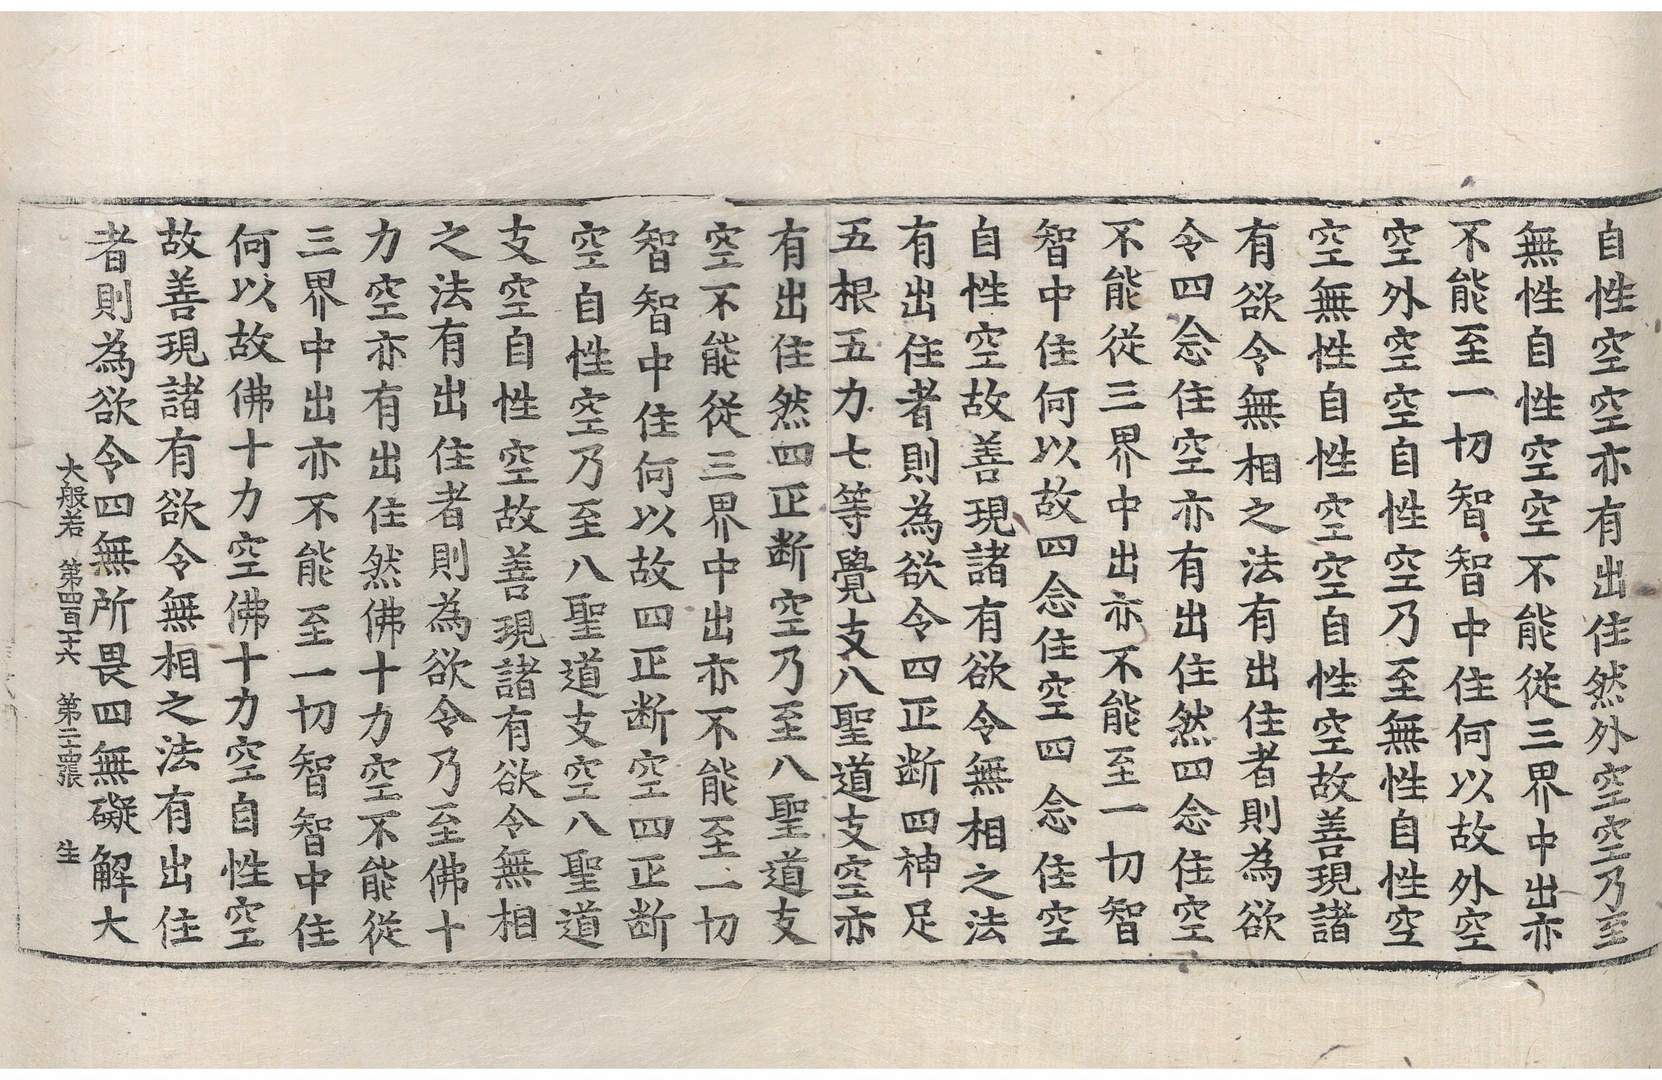 自性空空亦有出住然外空空乃至
無性自性空空不能從三界中出亦
不能至一切智智中住何以故外空
空外空空自性空乃至無性自性空
空無性自性空空自性空故善現諸
有欲令無相之法有出住者則為欲
令四念住空亦有出住然四念住空
不能從三界中出亦不能至一切智
智中住何以故四念住空四念住空
自性空故善現諸有欲令無相之法
有出住者則為欲令四正断四神足
五根五力七等覺支八聖道支空亦
有出住然四正断空乃至八聖道支
空不能從三界中出亦不能至一切
智智中住何以故四正断空四正断
空自性空乃至八聖道支空八聖道
支空自性空故善現諸有欲令無相
之法有出住者則為欲令乃至佛十
力空亦有出住然佛十力空不能從
三界中出亦不能至一切智智中住
何以故佛十力空佛十力空自性空
故善現諸有欲令無相之法有出住
者則為欲令四無所畏四無礙解大
大般若 第四百十六 第二十四張 生